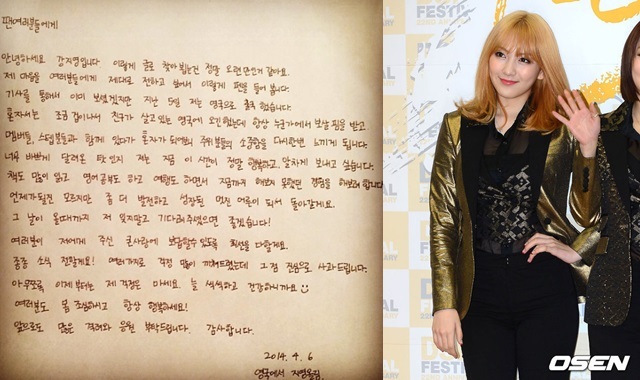 팬여러분들에게
안녕하세요 강지영입니다 이렇게 글로 찾아뵙는건 정말 오랜만인거 같아요.
제 마음을 여러분들에게 제대로 전하고 싶어서 이렇게 펜을 들어 봅니다.
기사를 통해서 이미 보셨겠지만 지난 5일 저는 영국으로 출국 했습니다.
혼자서는 조금 겁이나서 친구가 살고 있는 영국에 오긴했는데 항상 누군가에서 보살핌을 받고
멤버들, 스텝분들과 함께 있다가 혼자가 되어보니 주위분들의 소중함을 다시한번 느끼게 됩니다.
너무 바쁘게 달려온 탓인지 저는 지금 이 시간이 정말 행복하고 알차게 보내고 싶습니다.
책도 많이 읽고 영어공부도 하고 여행도 하면서 지금까지 해보지 못했던 경험을 해보려 합니다
언제가될진 모르지만 좀 더 발전하고 성장된 멋진 여륵이 되어 돌아갈게요.
그 날이 올때까지 저 잊지말고 기다려주셨으면 좋겠습니다!
여러분이 저에게 주신 큰사랑에 보답할수 있도록 최선을 다할게요.
종종 소식 전할게요! 여러가지로 걱정 많이 끼쳐드렸는데 그점 진심으로 사과드립니다.
아무쪼록 이제부터는 제 걱정은 마세요 늘 씩씩하고 건강하니까요
여러분도 몸 조심하시고 항상 행복하세요!
앞으로도 많은 격려와 응원 부탁드립니다. 감사합니다.
2014. 4. 6
영국에서 지영올림.
FESTI
22ND
OSEN